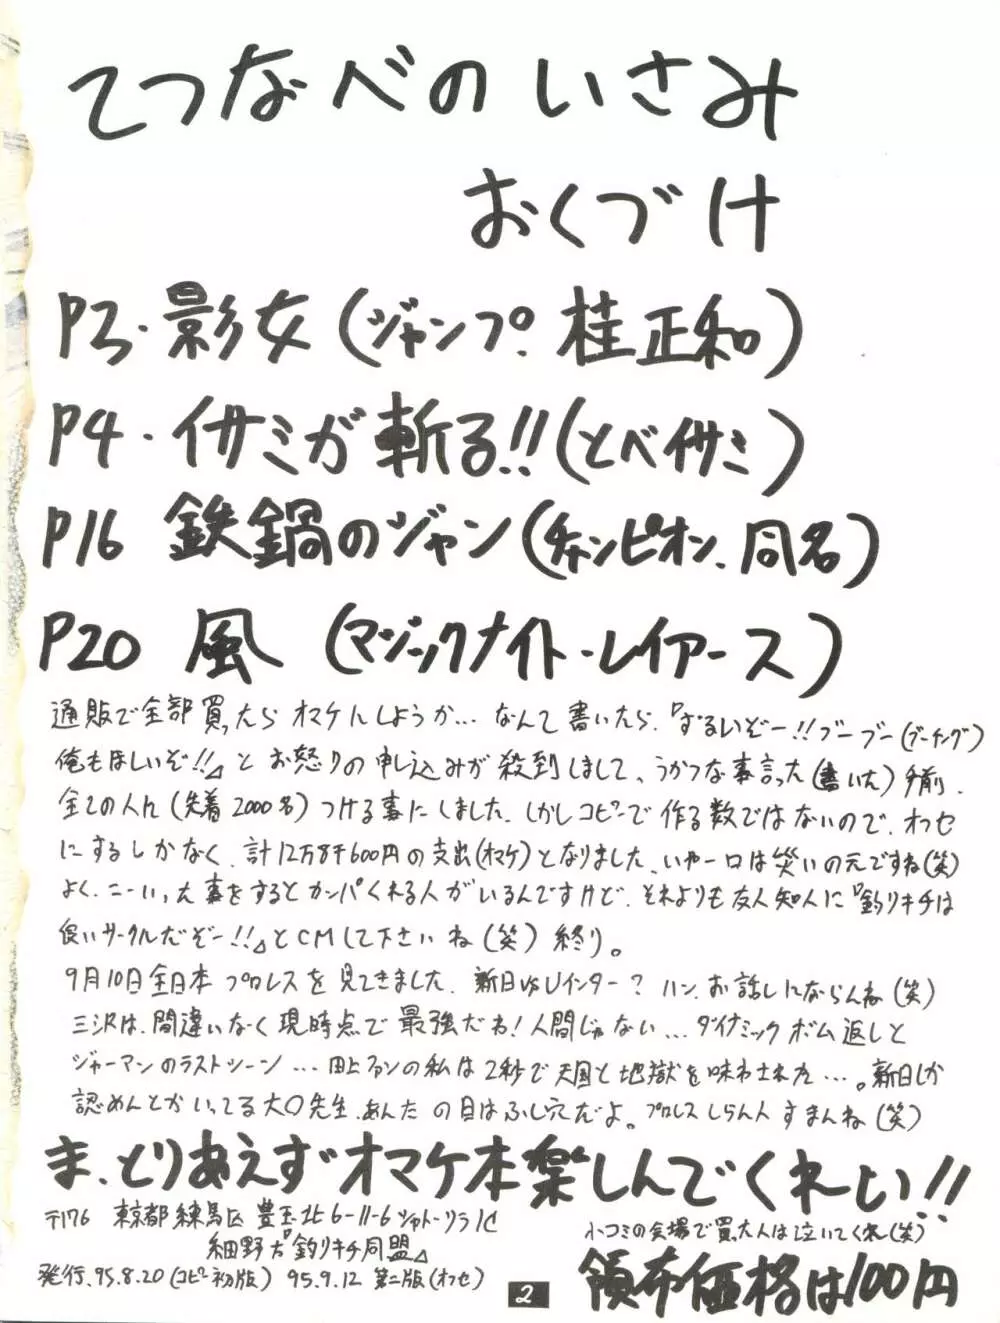 てつなべのいさみ
おくづけ
P3・影女(ジャンプ.桂正和)
P4・イサミが斬る!!(とべイサミ)
P16 鉄鍋のジャン(チャンピオン.同名)
P20 風 (マジックナイト・レイアース)
通販で全部買ったらオマケにしようか…なんて書いたら.『ずるいぞー!!ブーブー(ブーイング)
俺もほしいぞ!!』とお怒りの申し込みが殺到しまして、うかつな事言った(書いた)手前.
全ての人に(先着2000名)つける事にしました.しかしコピーで作る数ではないので.オフセ
にするしかなく.計12万8千600円の支出(オマケ)となりました.いやー口は災いの元ですね(笑)
よく.こーいった事をするとカンパくれる人がいるんですけど.それよりも友人知人に『釣りキチは
良いサークルだぞー!!』とCMして下さいね(笑)終り。
9月10日全日本プロレスを見てきました.新日vsUインター?ハン.お話しにならんね(笑)
三沢は.間違いなく現時点で最強だね!人間じゃない…ダイナミックボム返しと
ジャーマンのラストシーン…田上ファンの私は2秒で天国と地獄を味わされた…。新日しか
認めんとかいってる大〇先生.あんたの目はふし穴だよ。プロレスしらん人すまんね(笑)
ま.とりあえずオマケ本楽しんでくれーい!!
〒176 東京都練馬区豊玉北6-11-6シャトーソラ1C
細野方『釣りキチ同盟』
発行.95.8.20(コピー初版) 95.9.12 第二版(オフセ)
小コミの会場で買った人は泣いてくれ(笑)
領布価格は100円
2